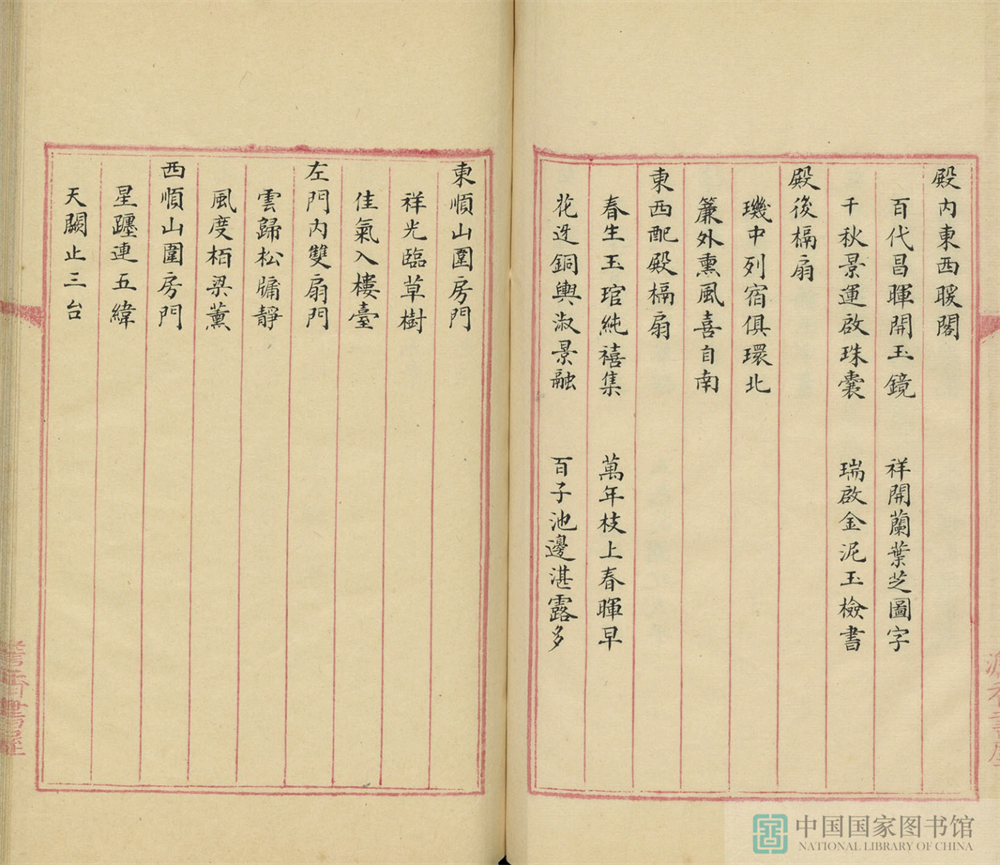 殿內東西暖閣
百代昌暉開玉鏡　祥開蘭葉芝圖字
千秋景運啟珠囊　瑞啟金泥玉檢書
殿後槅扇
璣中列宿俱環北
簾外熏風喜自南
東西配殿槅扇
春生玉琯純禧集　萬年枝上春暉早
花迓銅輿淑景融　百子池邊湛露多
東順山圍房門
祥光臨草樹
佳氣入樓臺
左門內雙扇門
雲歸松牖靜
風度栢梁薰
西順山圍房門
星躔連五緯
天闕止三台
中国国家图书馆
NATIONAL LIBRARY OF CHINA